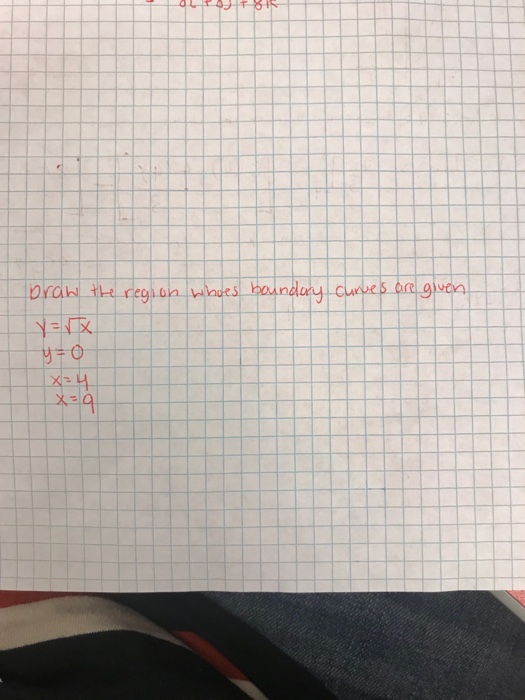 Draw the region whoes boundary curves are given
y=√x
y=0
x=4
x=9